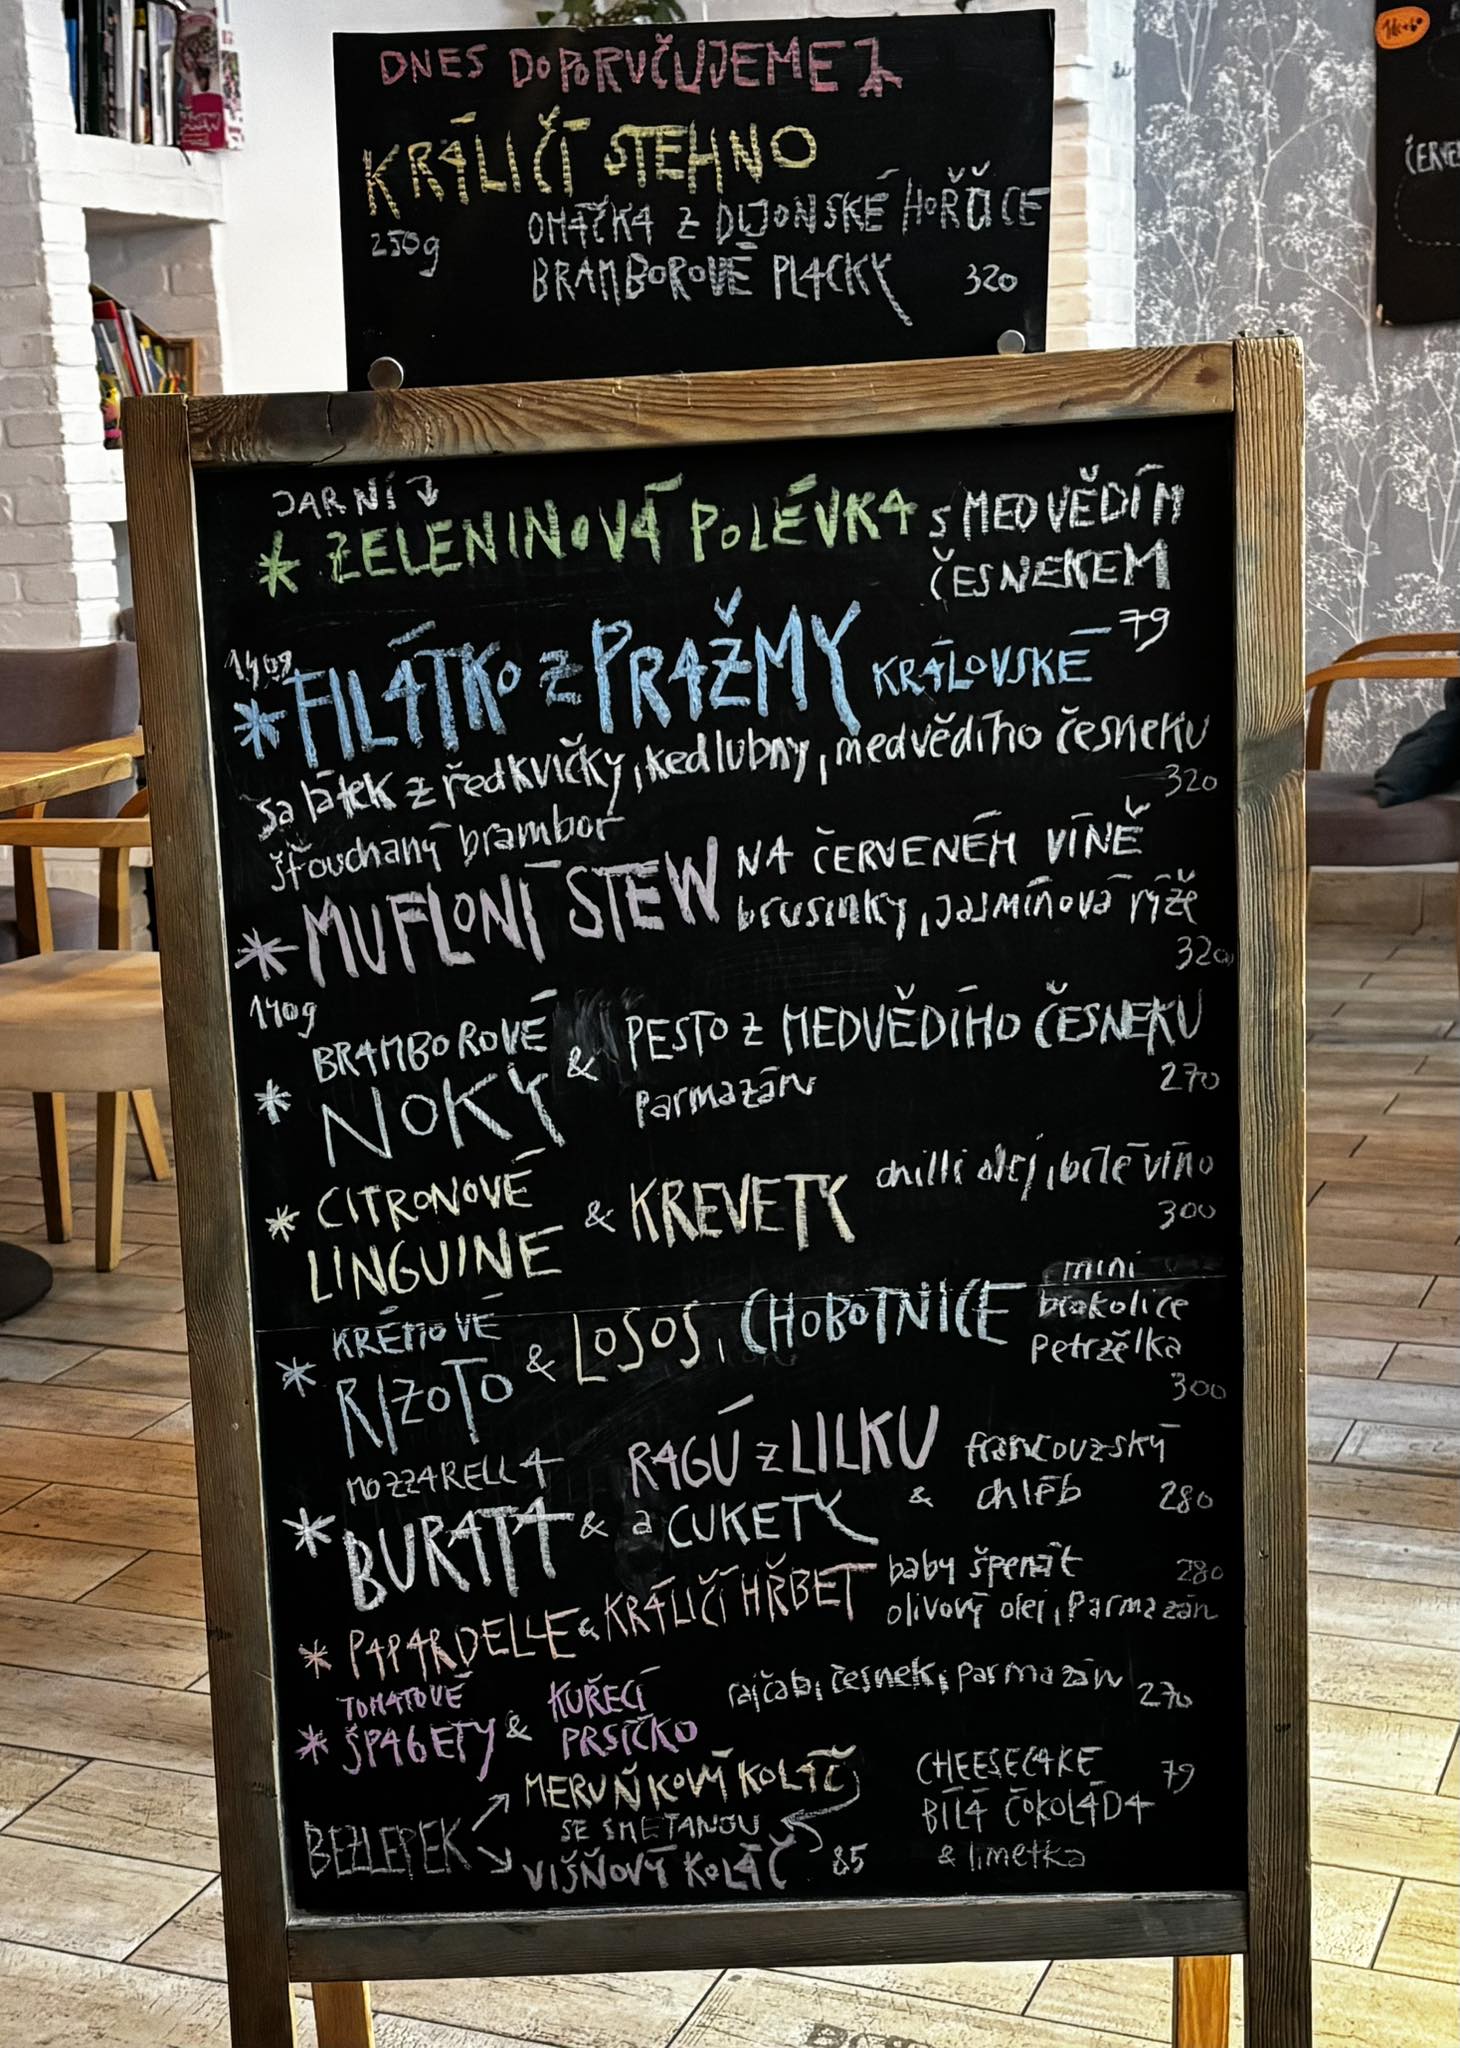 DNES DOPORUČUJEME
KRÁLIČÍ STEHNO
250g OMÁČKA Z DIJONSKÉ HOŘČICE
BRAMBOROVÉ PLACKY 320
JARNÍ
* ZELENINOVÁ POLÉVKA S MEDVĚDÍM
ČESNEKEM
79
140g
* FILÁTKO Z PRAŽMY KRÁLOVSKÉ
salátek z ředkvičky, kedlubny, medvědího česneku
320
šťouchaný brambor
* MUFLONÍ STEW NA ČERVENÉM VÍNĚ
brusinky, jasmínová rýže
320
140g
BRAMBOROVÉ
* NOKY & PESTO Z MEDVĚDÍHO ČESNEKU
parmazán 270
* CITRONOVÉ
LINGUINE & KREVETY chilli olej, bílé víno
300
KRÉMOVÉ
* RIZOTO & LOSOS, CHOBOTNICE mini
brokolice
petrželka
300
MOZZARELLA
* BURATA & RAGÚ z LILKU
a CUKETY & francouzský
chléb 280
* PAPARDELLE & KRÁLIČÍ HŘBET baby špenát 280
olivový olej, parmazán
TOMATOVÉ
* ŠPAGETY & KUŘECÍ
PRSÍČKO rajčab, česnek, parmazán 270
BEZLEPEK MERUŇKOVÝ KOLÁČ
SE SMETANOU
VIŠŇOVÝ KOLÁČ 85
CHEESECAKE 79
BÍLÁ ČOKOLÁDA
& limetka